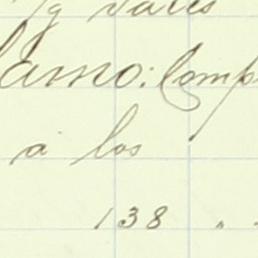 y vales
amo: Comp
a los
138 " "